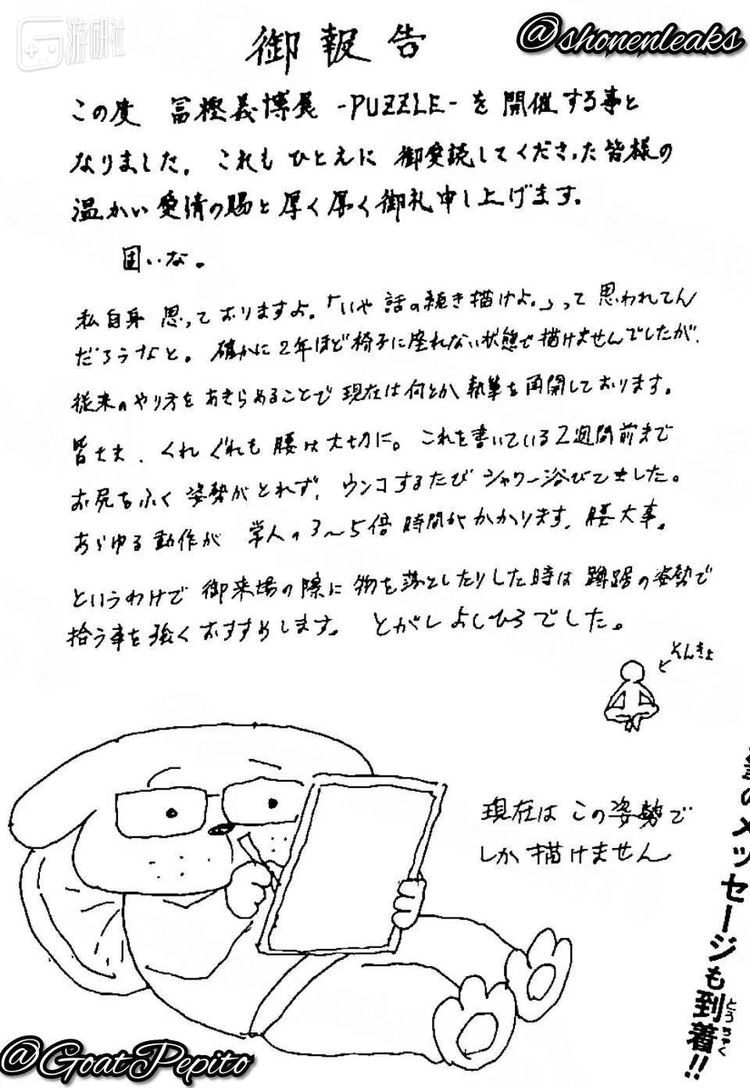 游研社
@shonenleaks
御報告
この度 冨樫義博展 -PUZZLE- を開催する事と
なりました。これもひとえに 御愛読してくださった皆様の
温かい愛情の賜と厚く厚く御礼申し上げます。
固いな。
私自身 思っておりますよ。「いや 話の続き描けよ。」って思われてん
だろうなと。確かに2年ほど椅子に座れない状態で描けませんでしたが、
従来のやり方をあきらめることで現在は何とか執筆を再開しております。
皆さま、くれぐれも腰は大切に。これを書いている2週間前まで
お尻をふく姿勢がとれず、ウンコするたびシャワー浴びてました。
あらゆる動作が 常人の3〜5倍時間がかかります。腰大事。
というわけで御来場の際に物を落としたりした時は蹲踞の姿勢で
拾う事を強くおすすめします。 とがしよしひろでした。
←そんきょ
現在はこの姿勢で
しか描けません
のメッセージも到着!!
とうちゃく
@GoatPepito